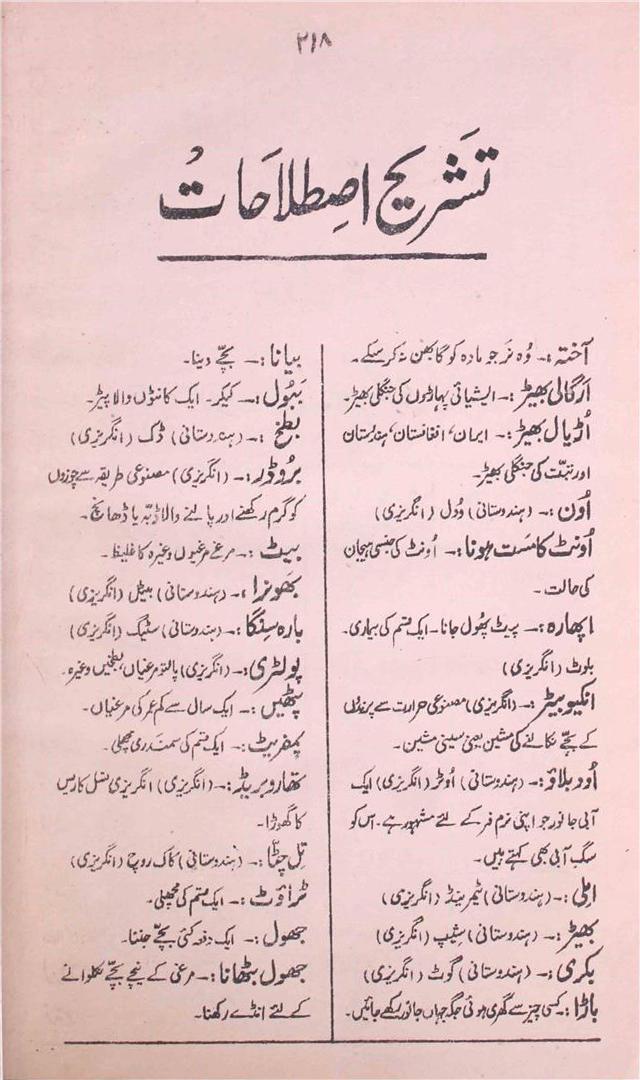 ۲۱۸
تشریحِ اصطلاحات
آختہ:۔ وُہ نر جو مادہ کو گابھن نہ کر سکے۔
ارگالی بھیڑ:۔ ایشیائی پہاڑوں کی جنگلی بھیڑ۔
اُڑیال بھیڑ:۔ ایران، افغانستان، ہندوستان
اور تبّت کی جنگلی بھیڑ۔
اُون:۔ (ہندوستانی) وُول (انگریزی)
اُونٹ کا مست ہونا:۔ اُونٹ کی جنسی ہیجان
کی حالت۔
اپھارہ:۔ پیٹ پھُول جانا۔ ایک قسم کی بیماری۔
بلوٹ (انگریزی)
انکیوبیٹر:۔ (انگریزی) مصنوعی حرارت سے پرندوں
کے بچّے نکالنے کی مشین یعنی مشین۔
اُود بلاؤ:۔ (ہندوستانی) اُوٹر (انگریزی) ایک
آبی جانور جو اپنی نرم فر کے لئے مشہور ہے۔ اس کو
سگ آبی بھی کہتے ہیں۔
املی:۔ (ہندوستانی) ٹیمرینڈ (انگریزی)
بھیڑ:۔ (ہندوستانی) شِیپ (انگریزی)
بکری:۔ (ہندوستانی) گوٹ (انگریزی)
باڑا:۔ کسی چیز سے گھری ہوئی جگہ جہاں جانور رکھے جائیں۔
بیانا:۔ بچّے دینا۔
ببُول:۔ کیکر۔ ایک کانٹوں والا پیڑ۔
بطخ:۔ (ہندوستانی) ڈک (انگریزی)
بروڈر:۔ (انگریزی) مصنوعی طریقہ سے چوزوں
کو گرم رکھنے اور پالنے والا ڈبّہ یا ڈھانچ۔
بیٹ:۔ مرغے مرغیوں وغیرہ کا غلیظ۔
بھونرا:۔ (ہندوستانی) بیٹل (انگریزی)
بارہ سنگا:۔ (ہندوستانی) سٹیگ (انگریزی)
پولٹری:۔ (انگریزی) پالتو مرغیاں، بطخیں وغیرہ۔
پٹھیں:۔ ایک سال سے کم عمر کی مرغیاں۔
پمفریٹ:۔ ایک قسم کی سمندری مچھلی۔
تھارو بریڈ:۔ (انگریزی) انگریزی نسل کا ریس
کا گھوڑا۔
تِل چٹّا:۔ (ہندوستانی) کاک روچ (انگریزی)
ٹراؤٹ:۔ ایک قسم کی مچھلی۔
جھول:۔ ایک دفہ کئی بچّے جننا۔
جھول بٹھانا:۔ مرغی کے نیچے بچّے نکلوانے
کے لئے انڈے رکھنا۔